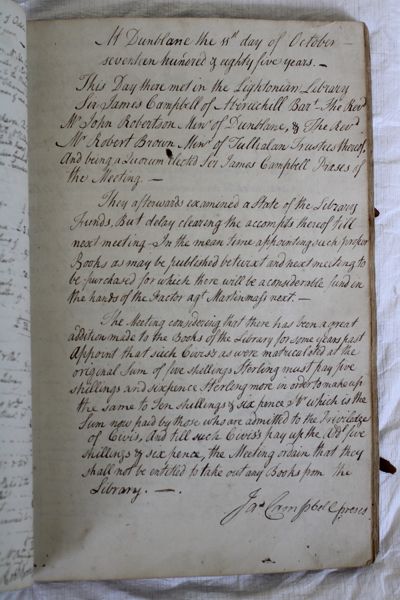 At Dunblane the 11th day of October
seventeen hundred & eighty five years. —
This Day there met in the Lightonian Library
Sir James Campbell of Aberuchill Bart. The Revd.
Mr. John Robertson Minr. of Dunblane, & The Revd.
Mr. Robert Brown Minr. of Tullialan Trustees thereof,
And being a Quorum elected Sir James Campbell Preses of
the Meeting. —
They afterwards examined a State of the Library
Funds, But delay clearing the accompts thereof till
next meeting. In the mean time appointing such proper
Books as may be published betwixt and next meeting to
be purchased for which there will be a considerable fund in
the hands of the Factor agt. Martinmass next. —
The Meeting considering that there has been a great
addition made to the Books of the Library for some years past
Appoint that such Civess as were matriculated at the
original Sum of five shillings Sterling must pay five
shillings and sixpence Sterling more in order to make up
the same to Ten shillings & six pence which is the
Sum now paid by those who are admitted to the Priviledge
of Civis, And till such Civess pay up the sd. five
shillings & six pence, the Meeting ordain that they
shall not be entitled to take out any Books from the
Library. —
Jas. Campbell preses